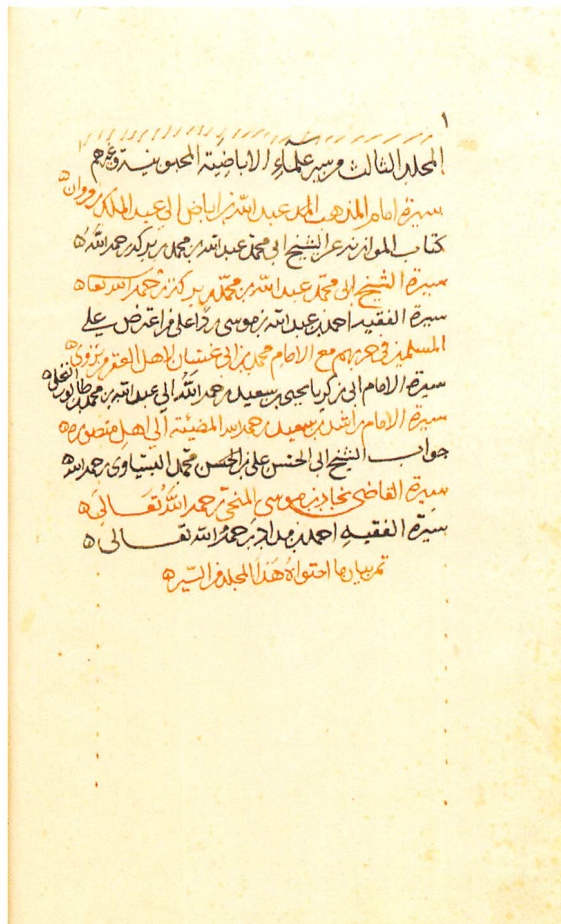 ١
المجلد الثالث من سير علماء الاباضية المحبوبية وغيرهم
سيرة امام المذهب المد عبد الله بن اباض الى عبد الملك بن مروان ه
كتاب الموازنه عن الشيخ ابى محمد عبد الله بن محمد بن بركه رحمه الله ه
سيرة الشيخ ابى محمد عبد الله بن محمد بن بركة رحمه الله تعا ه
سيرة الفقيه احمد بن عبد الله بن موسى ردا على من اعترض على
المسلمين في حربهم مع الامام محمد بن ابى غسان لاهل العقر من نزوى ه
سيرة الامام ابى زكريا يحيى بن سعيد رحمه الله الى عبد الله بن محمد بن طالوت النخلى ه
سيرة الامام راشد بن سعيد رحمه الله المضيئة الى اهل منصوره ه
جواب الشيخ ابى الحسن على بن الحسن محمد البسياوى رحمه الله ه
سيرة القاضى نجاد بن موسى المنحى رحمه الله تعالى ه
سيرة الفقيه احمد بن مداد رحمه الله تعالى ه
تم بيان ما احتواه هذا المجلد من السير ه